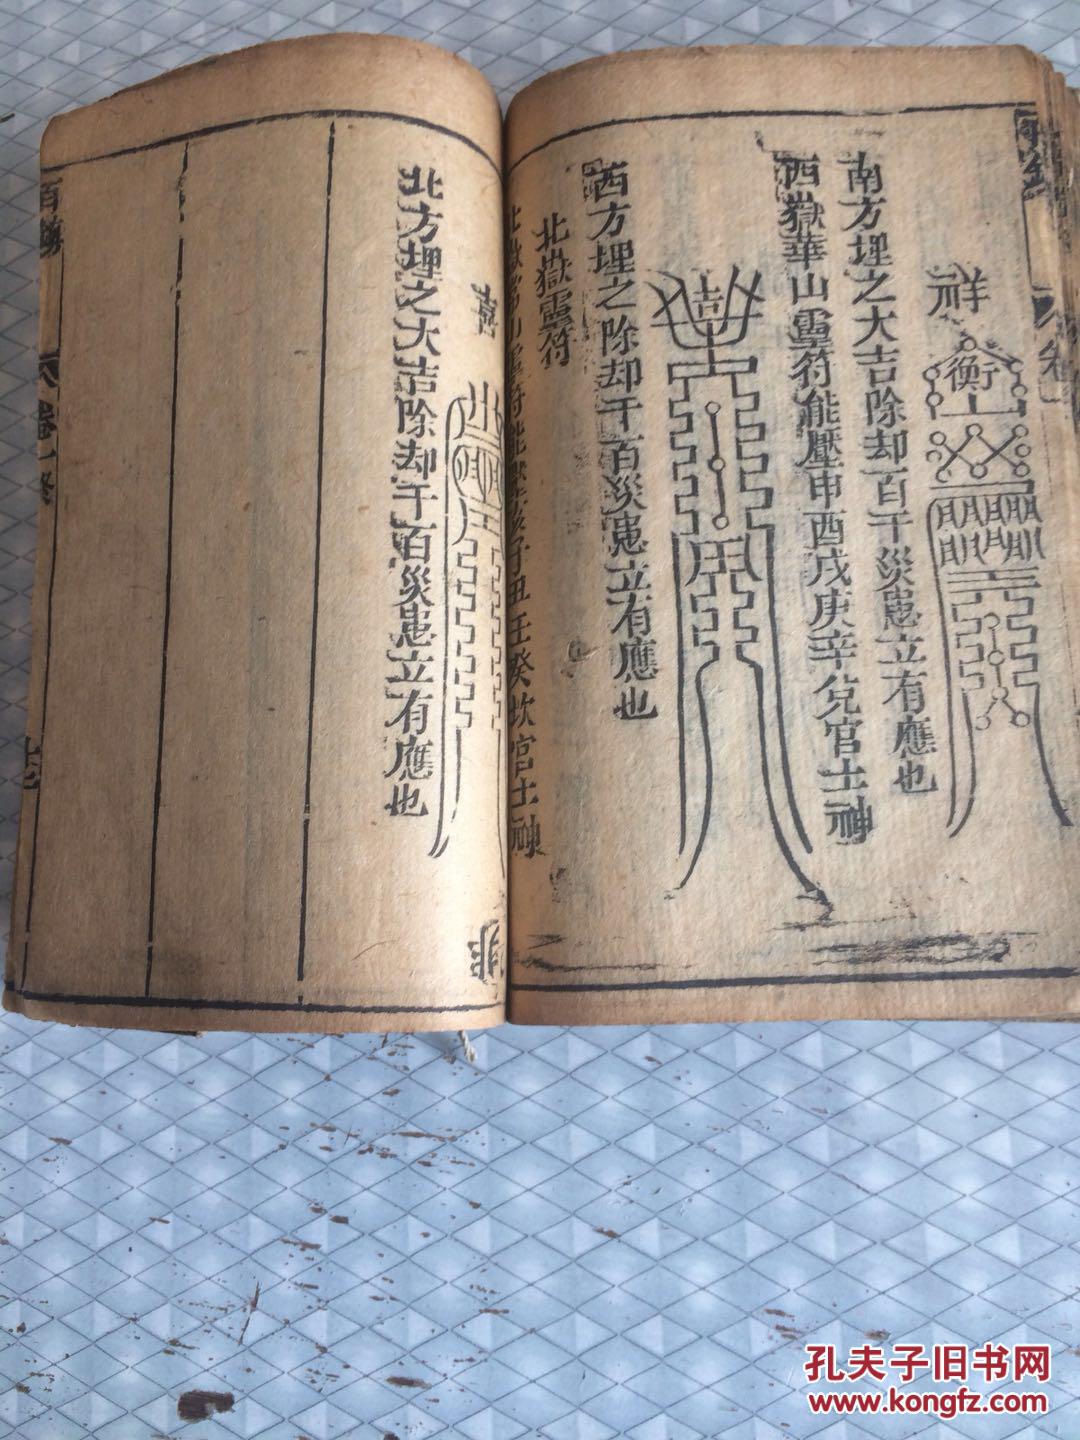 祥
衡
南方埋之大吉除却百千災患立有應也
西嶽華山靈符能壓申酉戌庚辛兌宮土神
吉
西方埋之除却千百災患立有應也
北嶽靈符
北嶽常山靈符能壓亥子丑壬癸坎宮土神
喜
北方埋之大吉除却千百災患立有應也
卷一終
孔夫子旧书网
www.kongfz.com